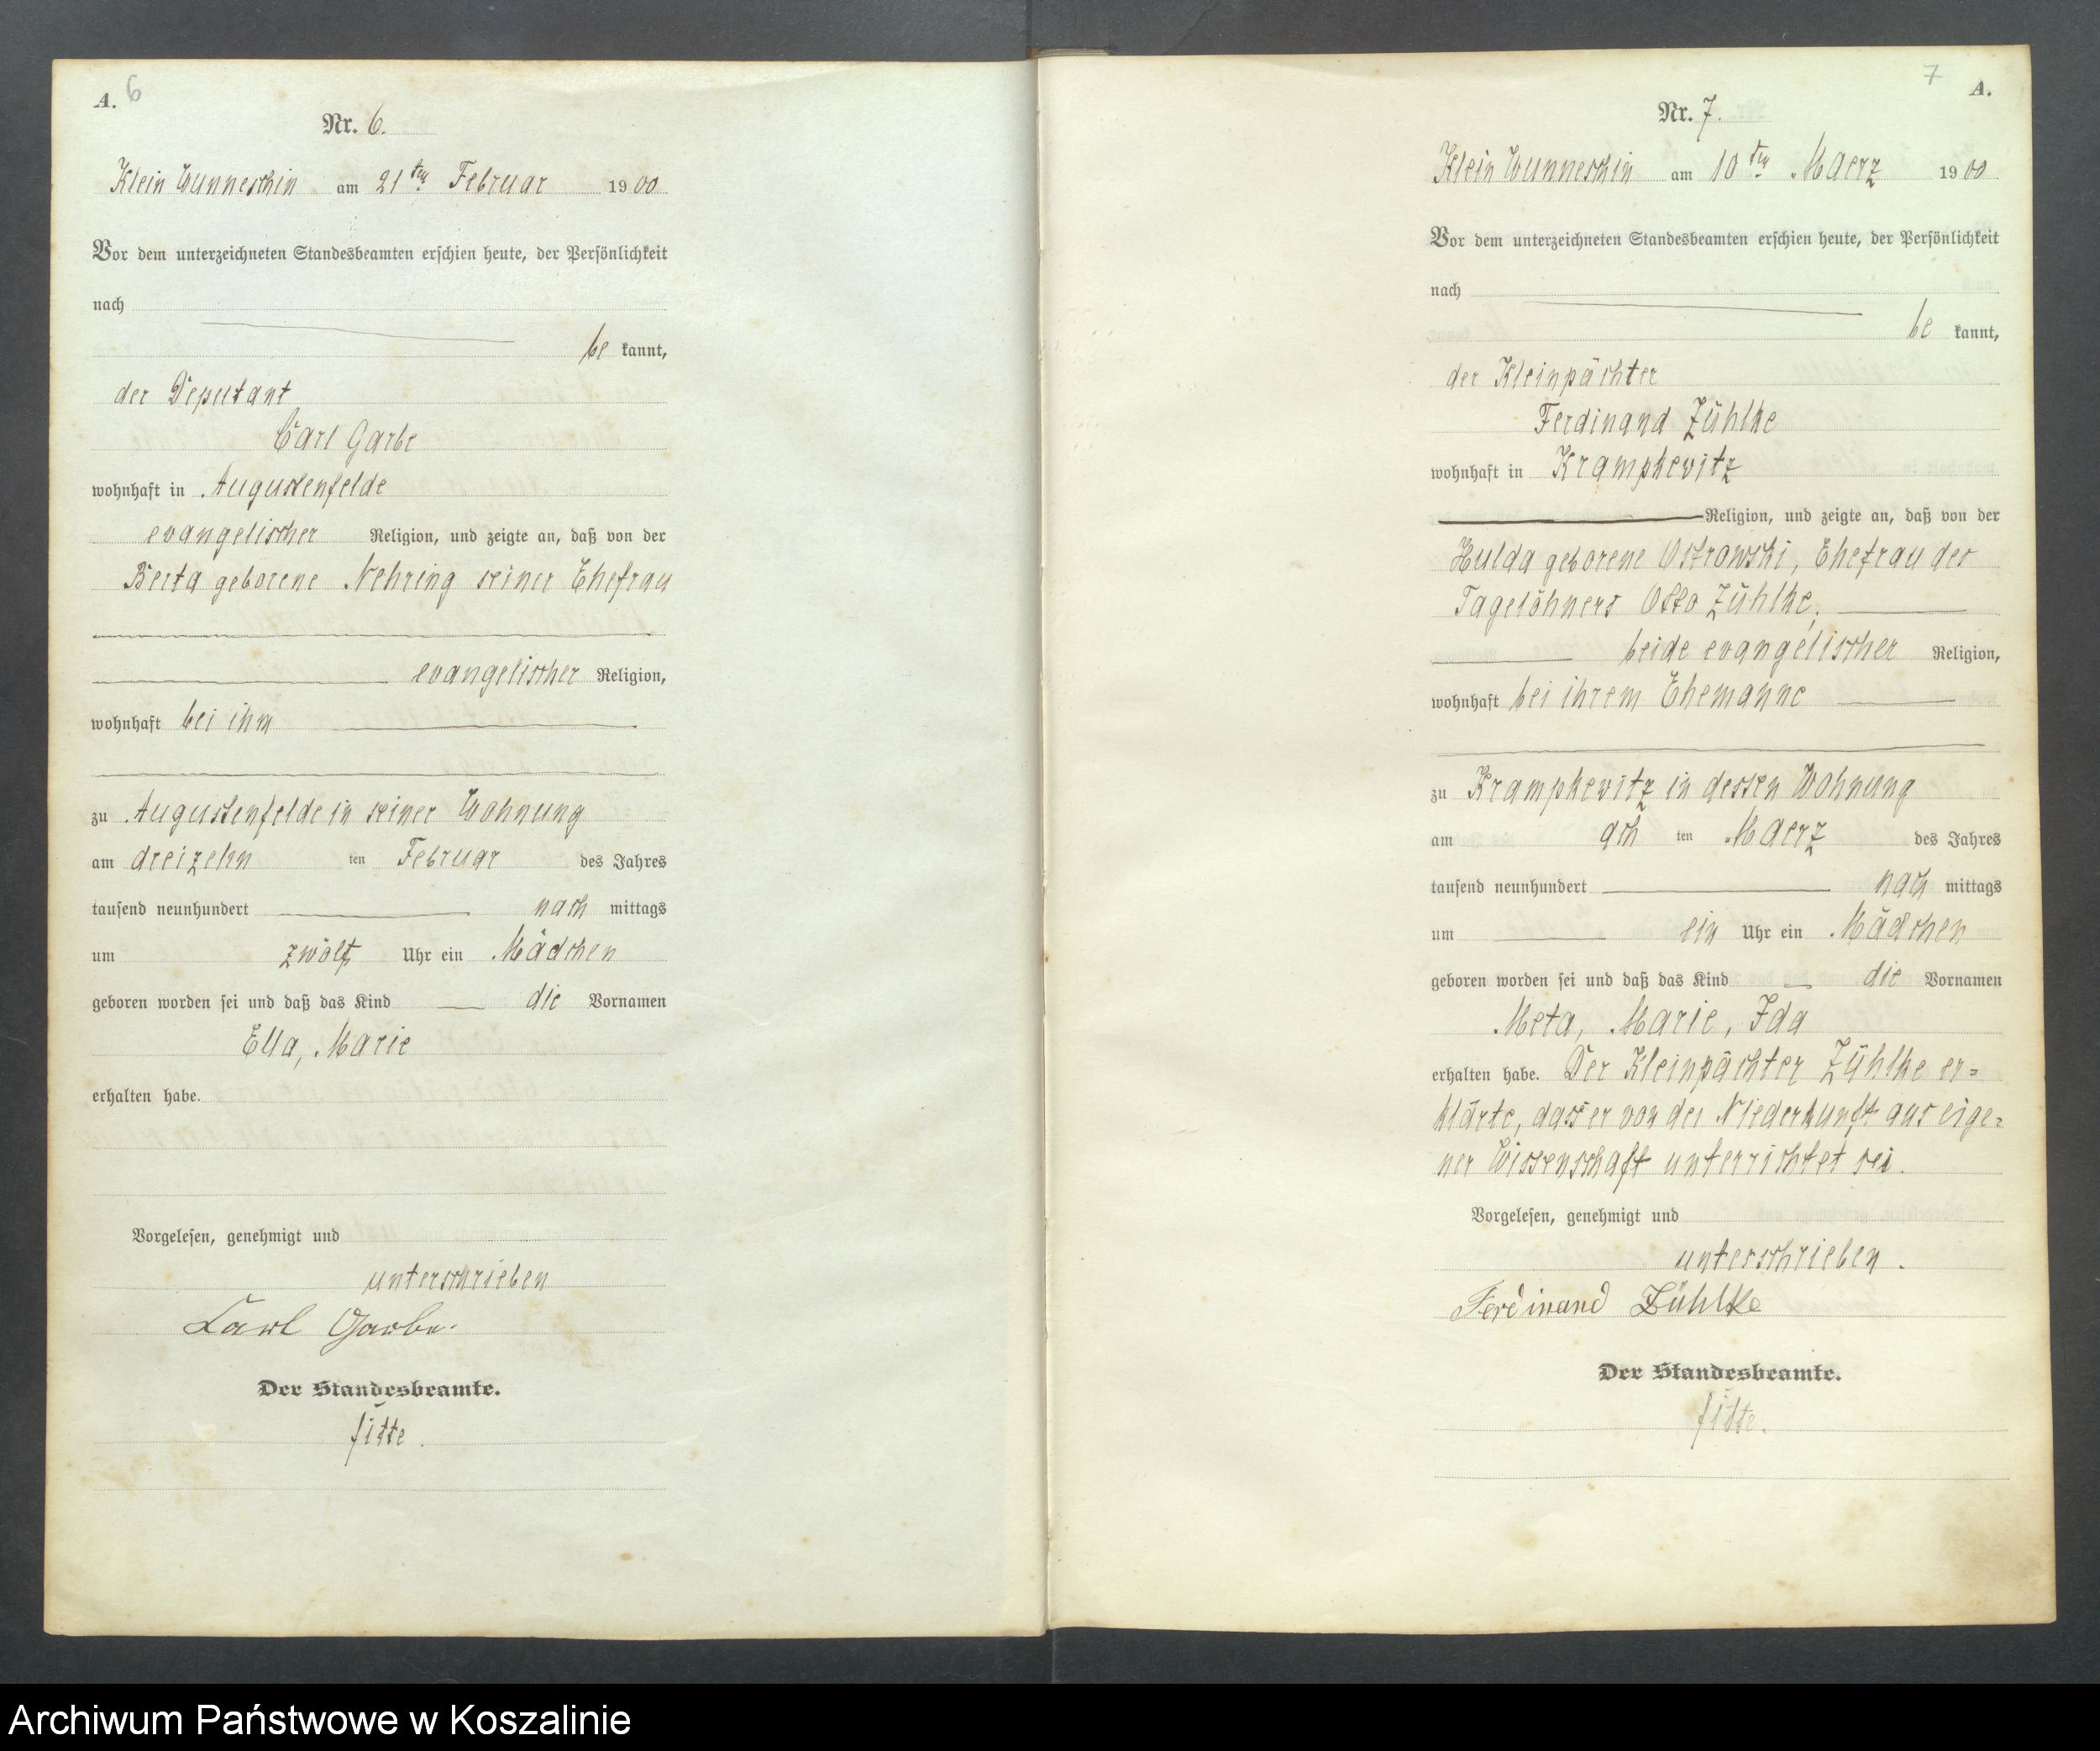 A. 6
Nr. 6.
Klein Wunneschin am 21ten Februar 1900
Vor dem unterzeichneten Standesbeamten erschien heute, der Persönlichkeit
nach
be kannt,
der Deputant
Carl Garbe
wohnhaft in Augustenfelde
evangelischer Religion, und zeigte an, daß von der
Berta geborene Nehring seiner Ehefrau
evangelischer Religion,
wohnhaft bei ihm
zu Augustenfelde in seiner Wohnung
am dreizehn ten Februar des Jahres
tausend neunhundert nach mittags
um zwölf Uhr ein Mädchen
geboren worden sei und daß das Kind die Vornamen
Ella, Marie
erhalten habe.
Vorgelesen, genehmigt und
unterschrieben
Carl Garbe.
Der Standesbeamte.
7 A.
Nr. 7.
Klein Wunneschin am 10ten Maerz 1900
Vor dem unterzeichneten Standesbeamten erschien heute, der Persönlichkeit
nach
be kannt,
der Kleinpächter
Ferdinand Zühlke
wohnhaft in Krampkewitz
Religion, und zeigte an, daß von der
Hulda geborene Ostrowski, Ehefrau des
Tagelöhners Otto Zühlke,
beide evangelischer Religion,
wohnhaft bei ihrem Ehemanne
zu Krampkewitz in dessen Wohnung
am ach ten Maerz des Jahres
tausend neunhundert nach mittags
um ein Uhr ein Mädchen
geboren worden sei und daß das Kind die Vornamen
Meta, Marie, Ida
erhalten habe. Der Kleinpächter Zühlke er=
klärte, dass er von der Niederkunft aus eige=
ner Wissenschaft unterrichtet sei.
Vorgelesen, genehmigt und
unterschrieben.
Ferdinand Zühlke
Der Standesbeamte.
Archiwum Państwowe w Koszalinie